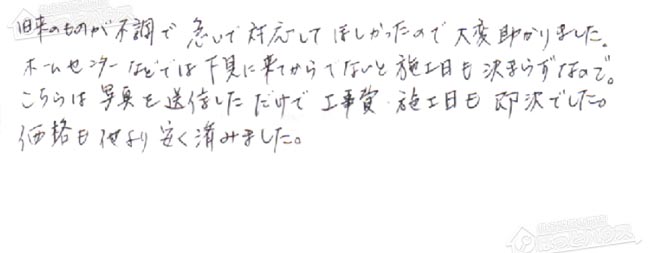 旧来のものが不調で 急いで対応してほしかったので大変助かりました。
ホームセンターなどでは下見に来てからでないと施工日も決まらずなので。
こちらは写真を送信しただけで工事費・施工日も即決でした。
価格も他より安く済みました。